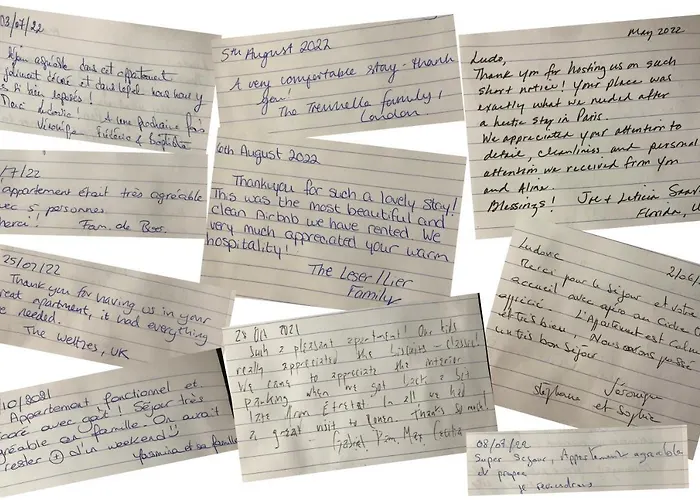 03/07/22
séjour agréable dans cet appartement
joliment décoré et dans lequel nous nous
bien reposés !
Merci Ludovic ! A une prochaine fois
Véronique Frédéric & Baptiste
5th August 2022
A very comfortable stay - thank
you!
The Trennelle family,
London
May 2022
Ludo,
Thank you for hosting us on such
short notice! Your place was
exactly what we needed after
a hectic stay in Paris.
We appreciated your attention to
detail, cleanliness and personal
attention we received from you
and Aline.
Blessings! Joe & Leticia
Florida, U
/7/22
appartement était très agréable
vec 5 personnes.
erci! Fam. de Boos.
6th August 2022
Thankyou for such a lovely stay!
This was the most beautiful and
clean Airbnb we have rented. We
very much appreciated your warm
hospitality!!
The Leser/Lier
Family
25/07/22
Thank you for having us in your
reat apartment, it had everything
e needed.
The Weltzes, UK
Ludovic 2/06/
Merci pour le séjour et votre
accueil avec apéro au Cidre
apprécié. L'Appartement est Calme
et très bien. Nous avons passé
un très bon séjour
Véronique
Stéphane et Sophie
28 Oct 2021
Such a pleasant apartment! Our kids
really appreciated the
We came to appreciate the interior
parking when we got back a bit
late from Étretat. In all we had
a great visit to Rouen. Thanks so much!
- Gabriel, Pim, Max,
10/2021
Appartement fonctionnel et
coré avec goût ! Séjour très
gréable en famille. On aurait
rester ⊕ d'un weekend ☺
Yasmina et sa famille
08/07/22
Super Séjour, Appartement agréable
et propre
je reviendrais